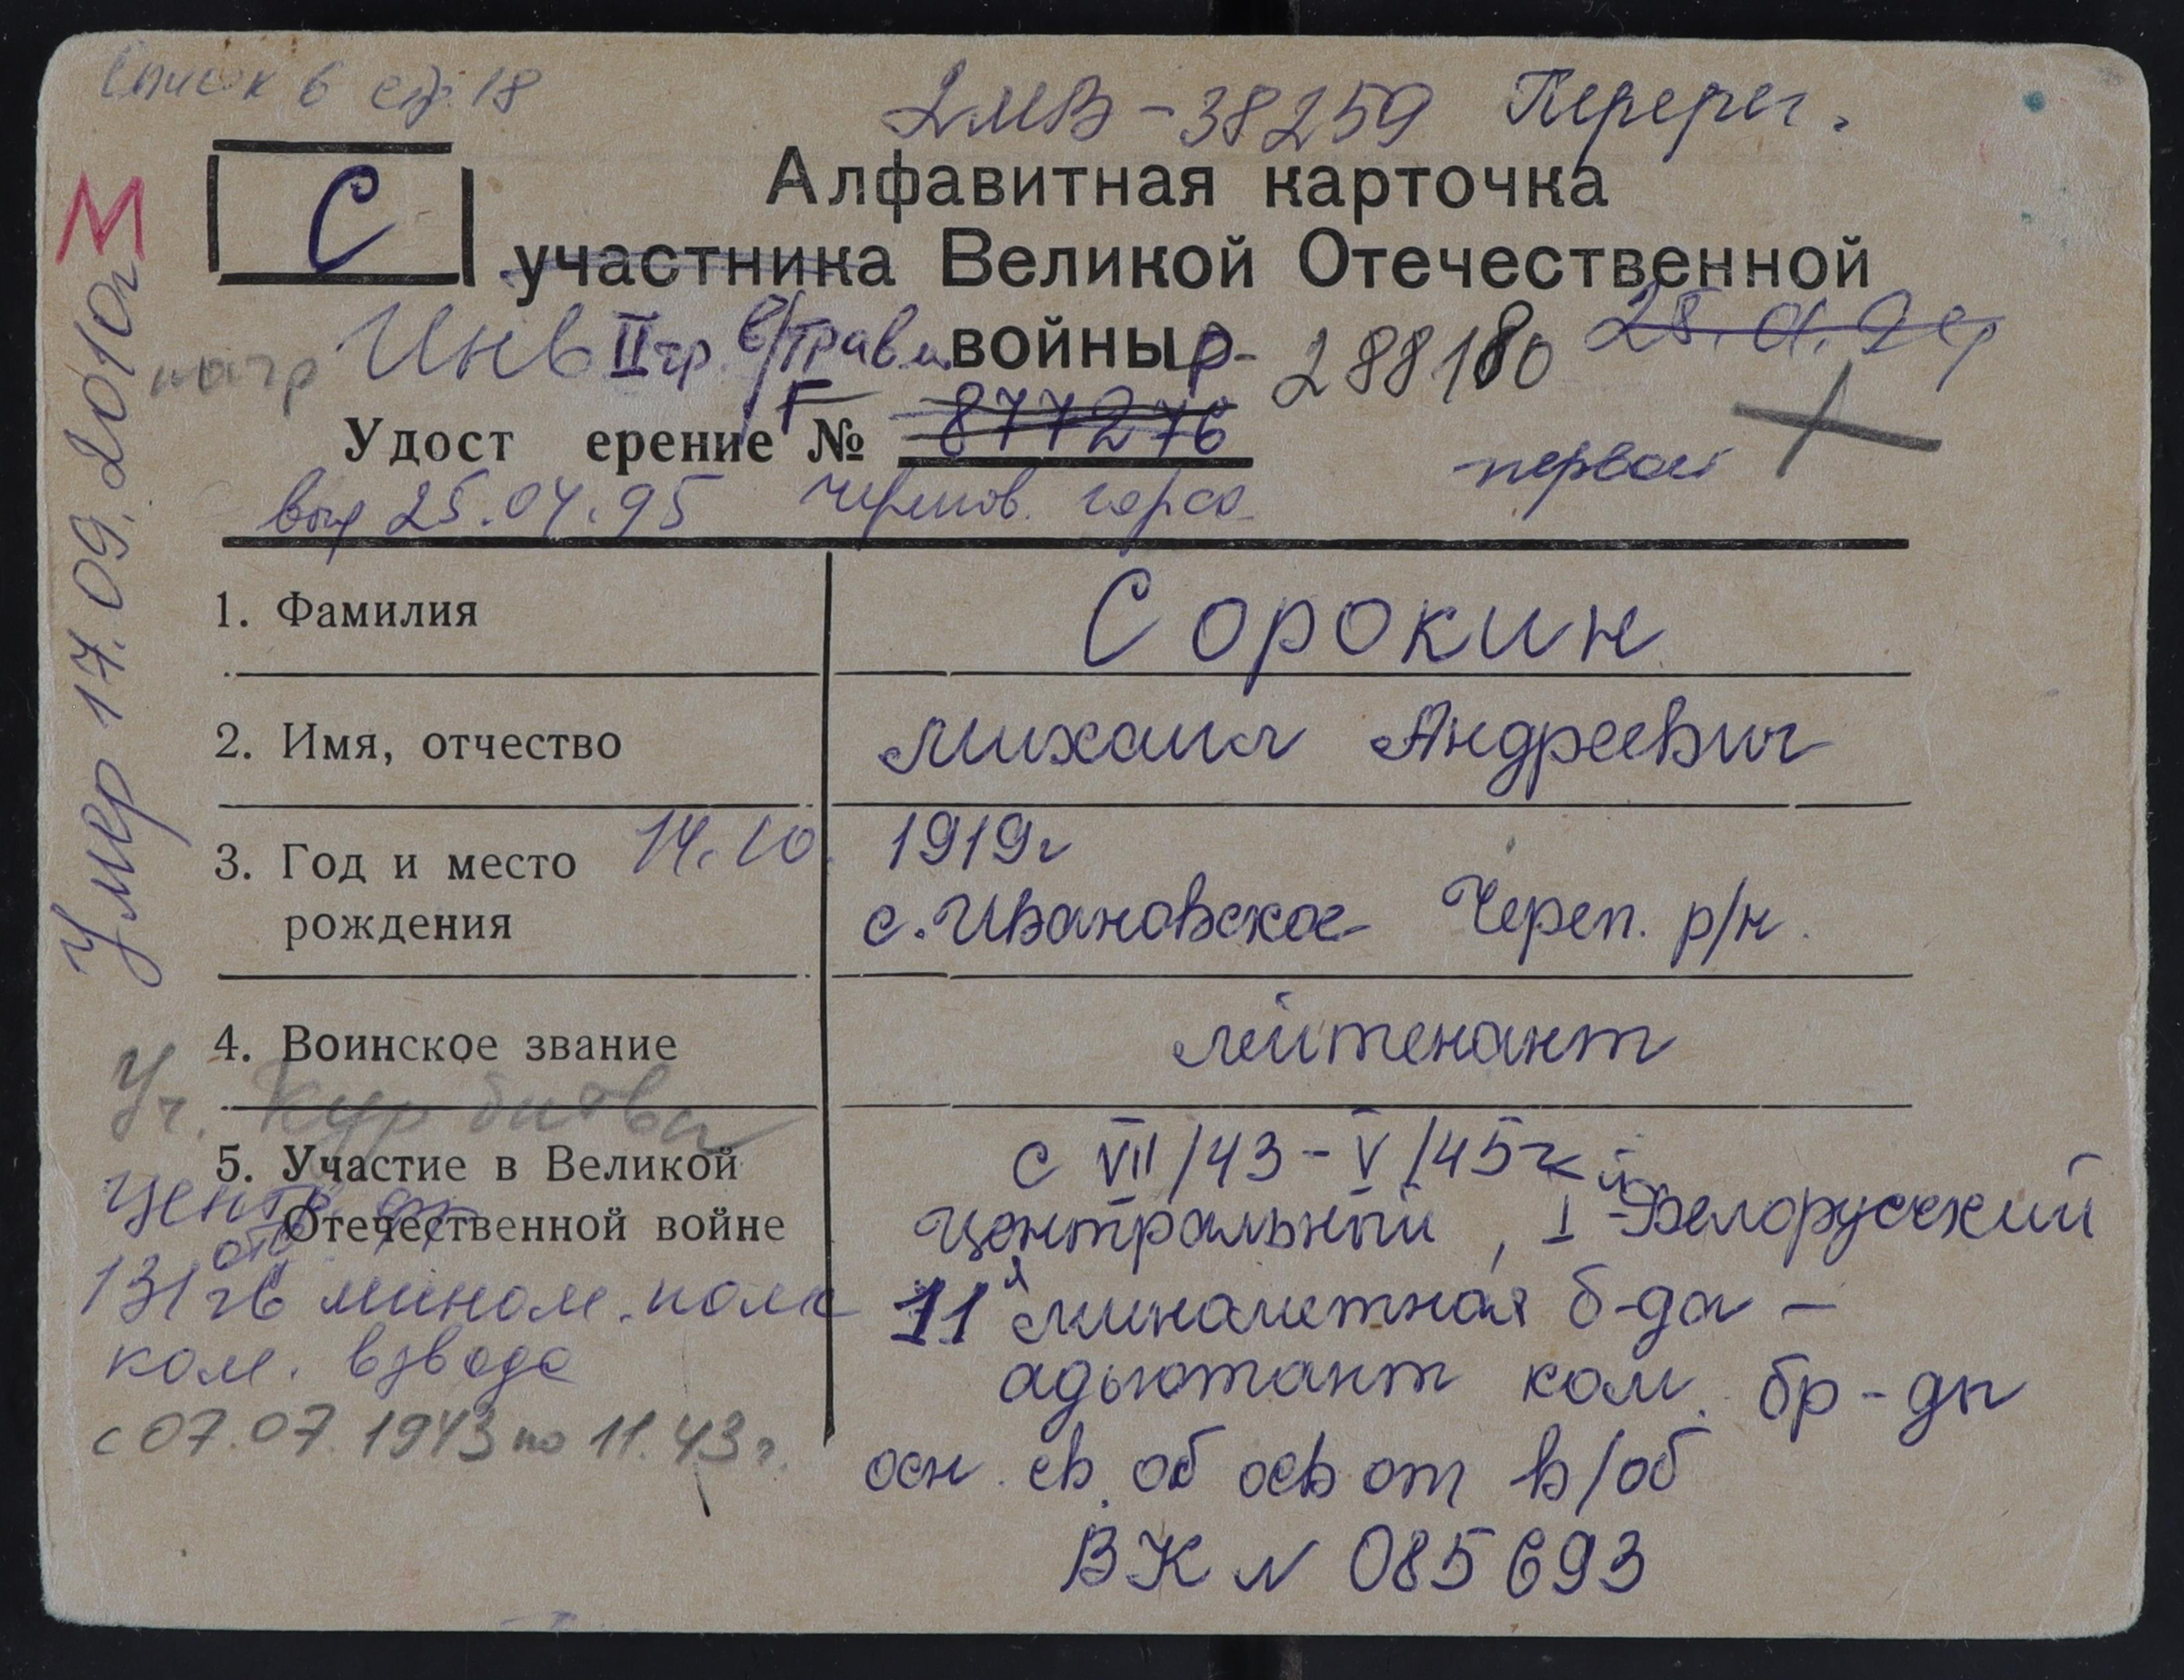 Список 6 стр. 18
2МВ-38259 Перерег.
С
М
Алфавитная карточка
участника Великой Отечественной
войны
Инв II гр. Р-288180
Удост ерение № Г 877276
первой
выд 25.04.95 черепов. горсо
Умер 17.09.2010г
1. Фамилия Сорокин
2. Имя, отчество Михаил Андреевич
3. Год и место 14.10. 1919г
рождения с. Ивановское Череп. р/н.
4. Воинское звание лейтенант
Уч. Кур битвы
5. Участие в Великой с VII/43-V/45г
Отечественной войне Центральный, I Белорусский
Центр. фр
131 гв мином. полк
ком. взвода
с 07.07.1943 по 11.43г.
11я минометная б-да -
адьютант ком. бр-ды
осн. св. об осв от в/об
ВК № 085693